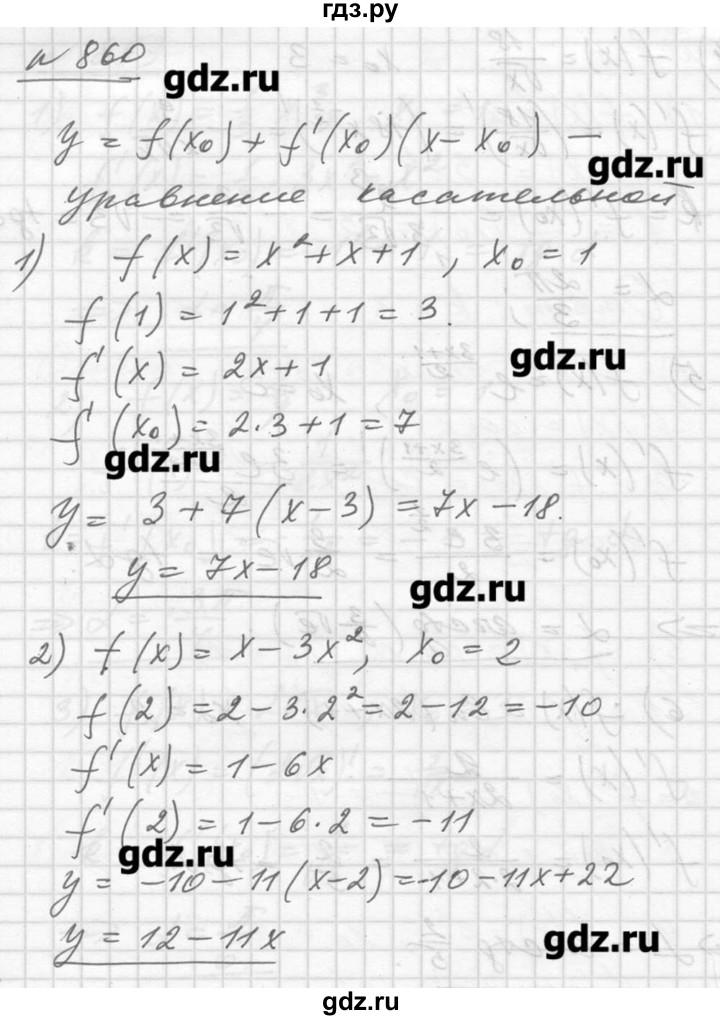 гдз.ру
№ 860
gdz.ru
y = f(x₀) + f'(x₀)(x - x₀) —
gdz.ru
уравнение касательной
1) f(x) = x² + x + 1, x₀ = 1
f(1) = 1² + 1 + 1 = 3.
gdz.ru
f'(x) = 2x + 1
f'(x₀) = 2·3 + 1 = 7
gdz.ru
y = 3 + 7(x - 3) = 7x - 18.
y = 7x - 18
gdz.ru
2) f(x) = x - 3x², x₀ = 2
f(2) = 2 - 3·2² = 2 - 12 = -10
f'(x) = 1 - 6x
f'(2) = 1 - 6·2 = -11
gdz.ru
y = -10 - 11(x - 2) = -10 - 11x + 22
y = 12 - 11x
gdz.ru
gdz.ru